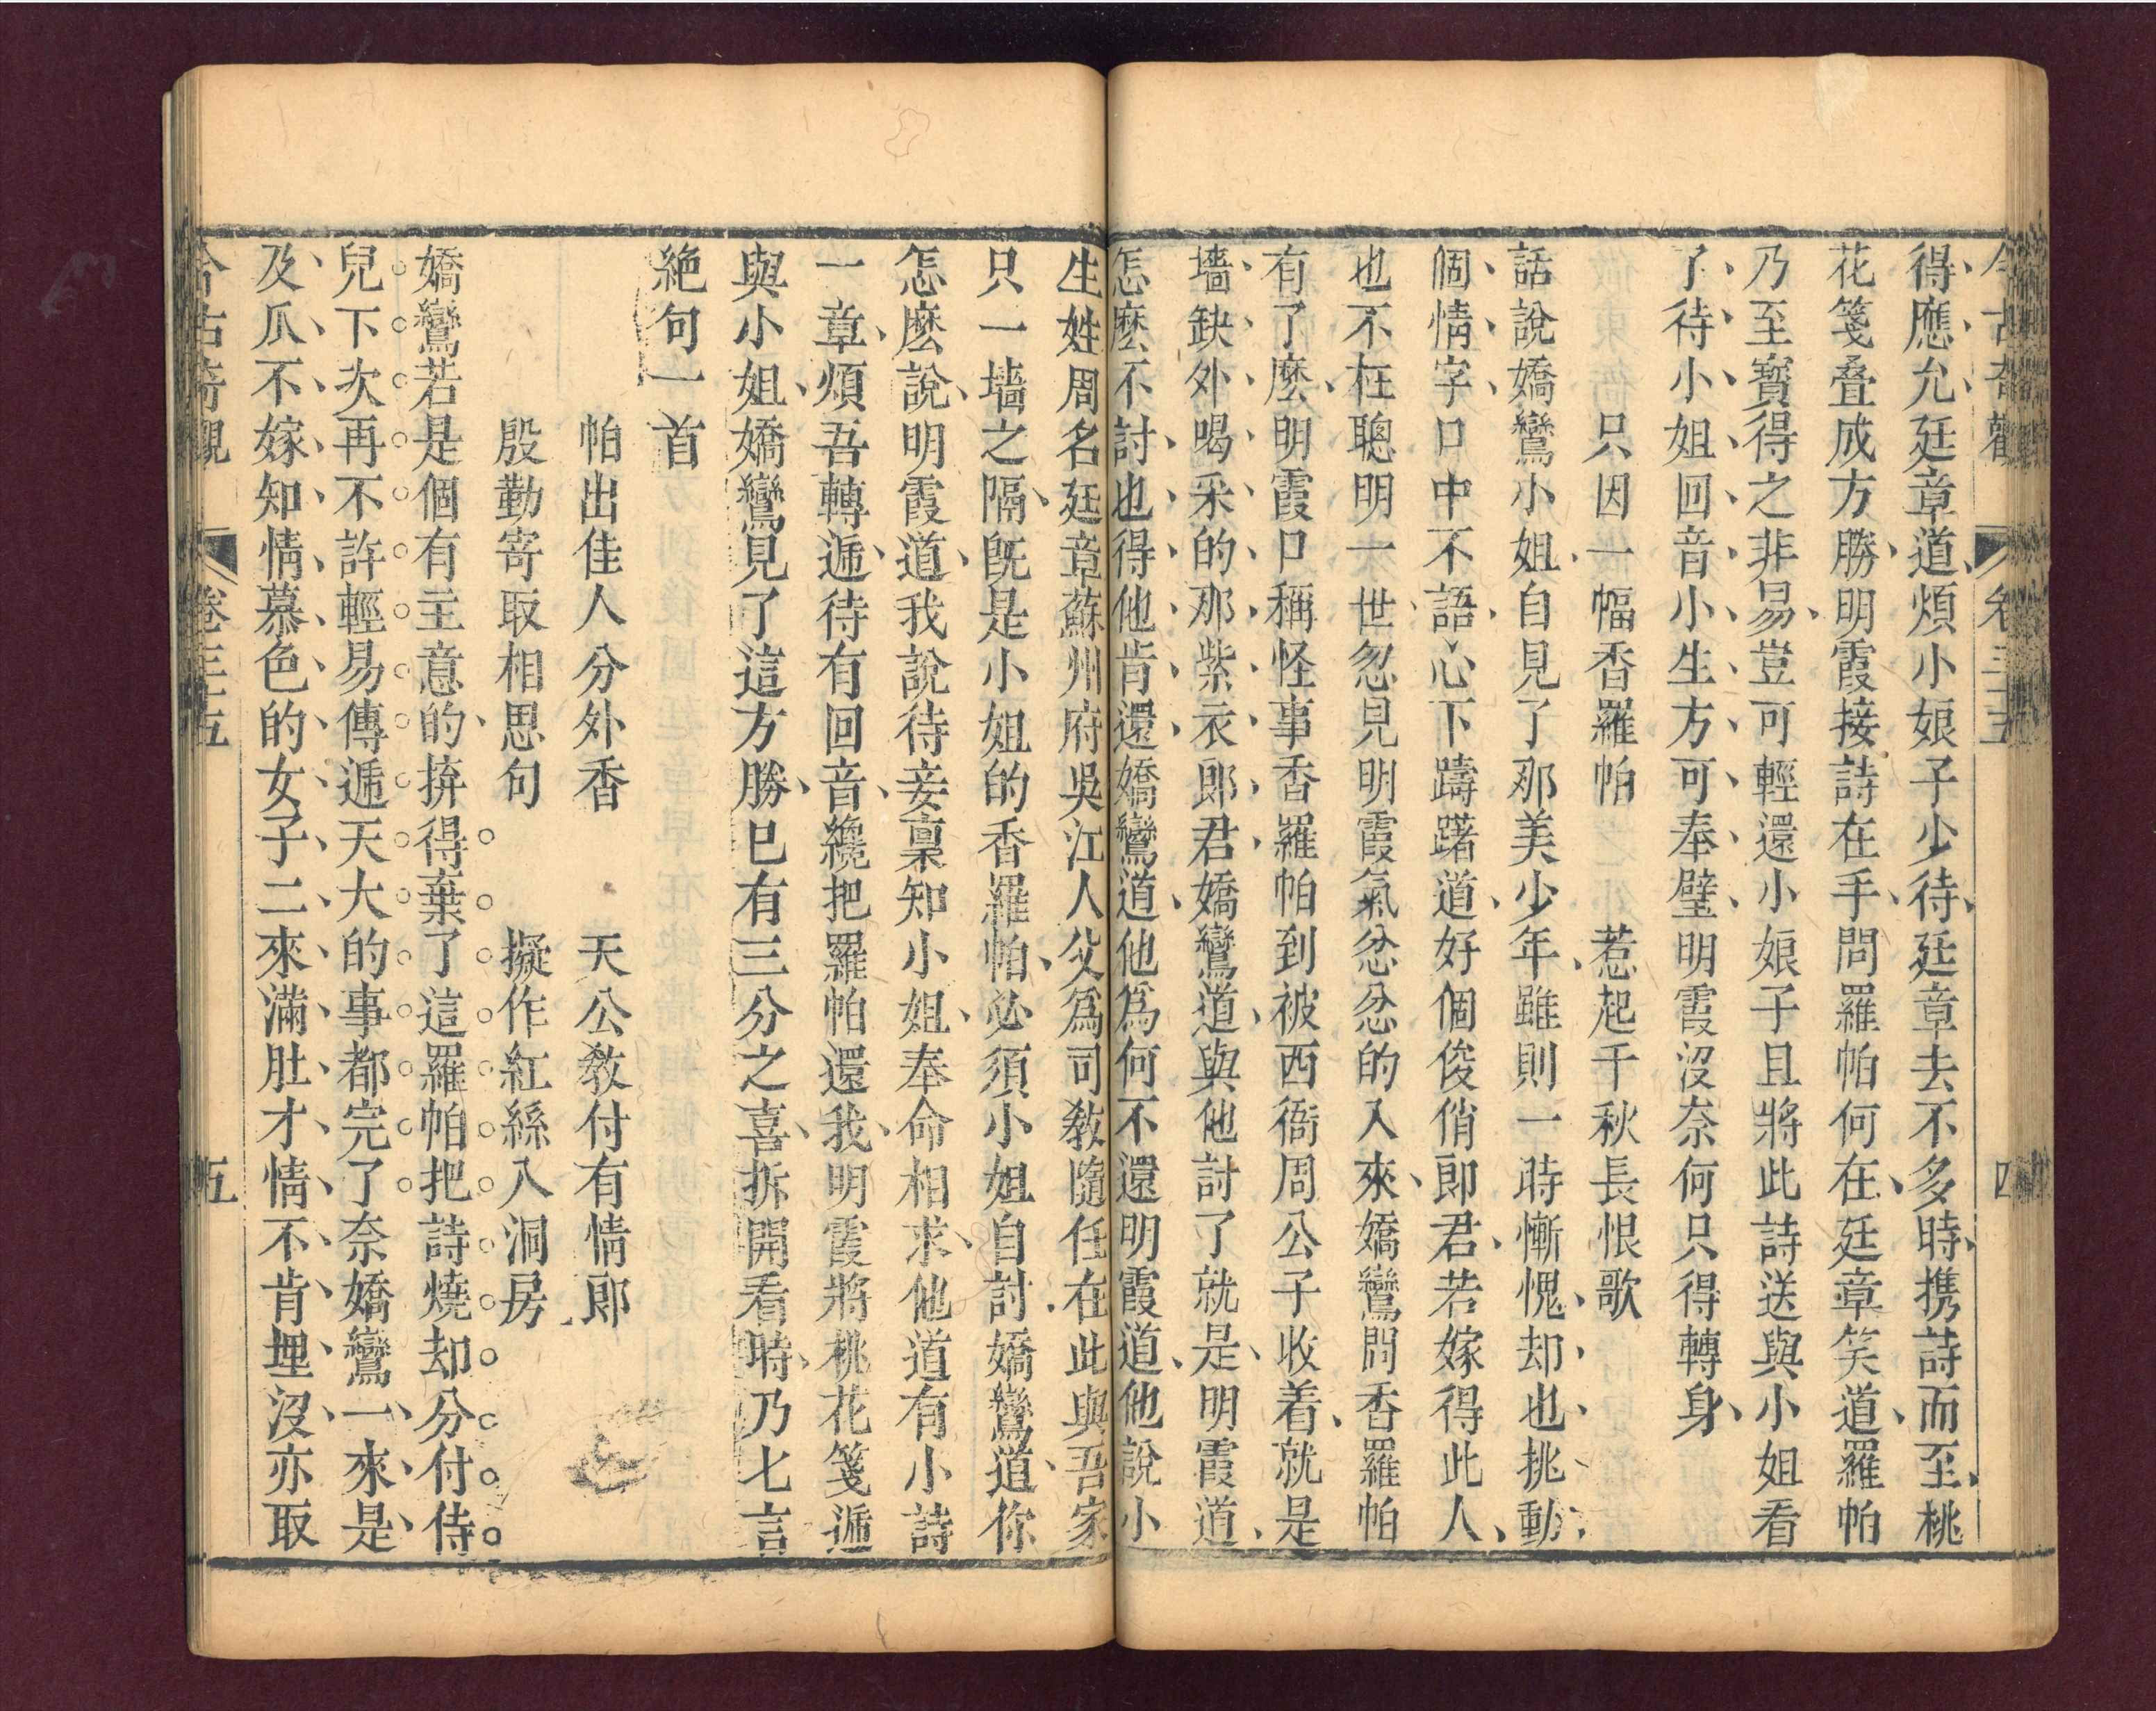 今古奇觀 卷三十五 四
得應允廷章道煩小娘子少待廷章去不多時携詩而至桃
花箋叠成方勝明霞接詩在手問羅帕何在廷章笑道羅帕
乃至寳得之非易豈可輕還小娘子且將此詩送與小姐看
了待小姐回音小生方可奉璧明霞沒奈何只得轉身
只因一幅香羅帕 惹起千秋長恨歌
話說嬌鸞小姐自見了那美少年雖則一時慚愧却也挑動
個情字口中不語心下躊躇道好個俊俏郎君若嫁得此人
也不枉聰明一世忽見明霞氣忿忿的入來嬌鸞問香羅帕
有了麽明霞口稱怪事香羅帕到被西衙周公子收着就是
墻缺外喝采的那紫衣郎君嬌鸞道與他討了就是明霞道
怎麽不討也得他肯還嬌鸞道他爲何不還明霞道他說小
生姓周名廷章蘇州府吳江人父爲司敎隨任在此與吾家
只一墻之隔旣是小姐的香羅帕必須小姐自討嬌鸞道你
怎麽說明霞道我說待妾稟知小姐奉命相求他道有小詩
一章煩吾轉遞待有回音纔把羅帕還我明霞將桃花箋遞
與小姐嬌鸞見了這方勝已有三分之喜拆開看時乃七言
絕句一首
帕出佳人分外香 天公敎付有情郎
殷勤寄取相思句 擬作紅絲入洞房
嬌鸞若是個有主意的拚得棄了這羅帕把詩燒却分付侍
兒下次再不許輕易傳遞天大的事都完了奈嬌鸞一來是
及瓜不嫁知情慕色的女子二來滿肚才情不肯埋沒亦取
今古奇觀 卷三十五 五